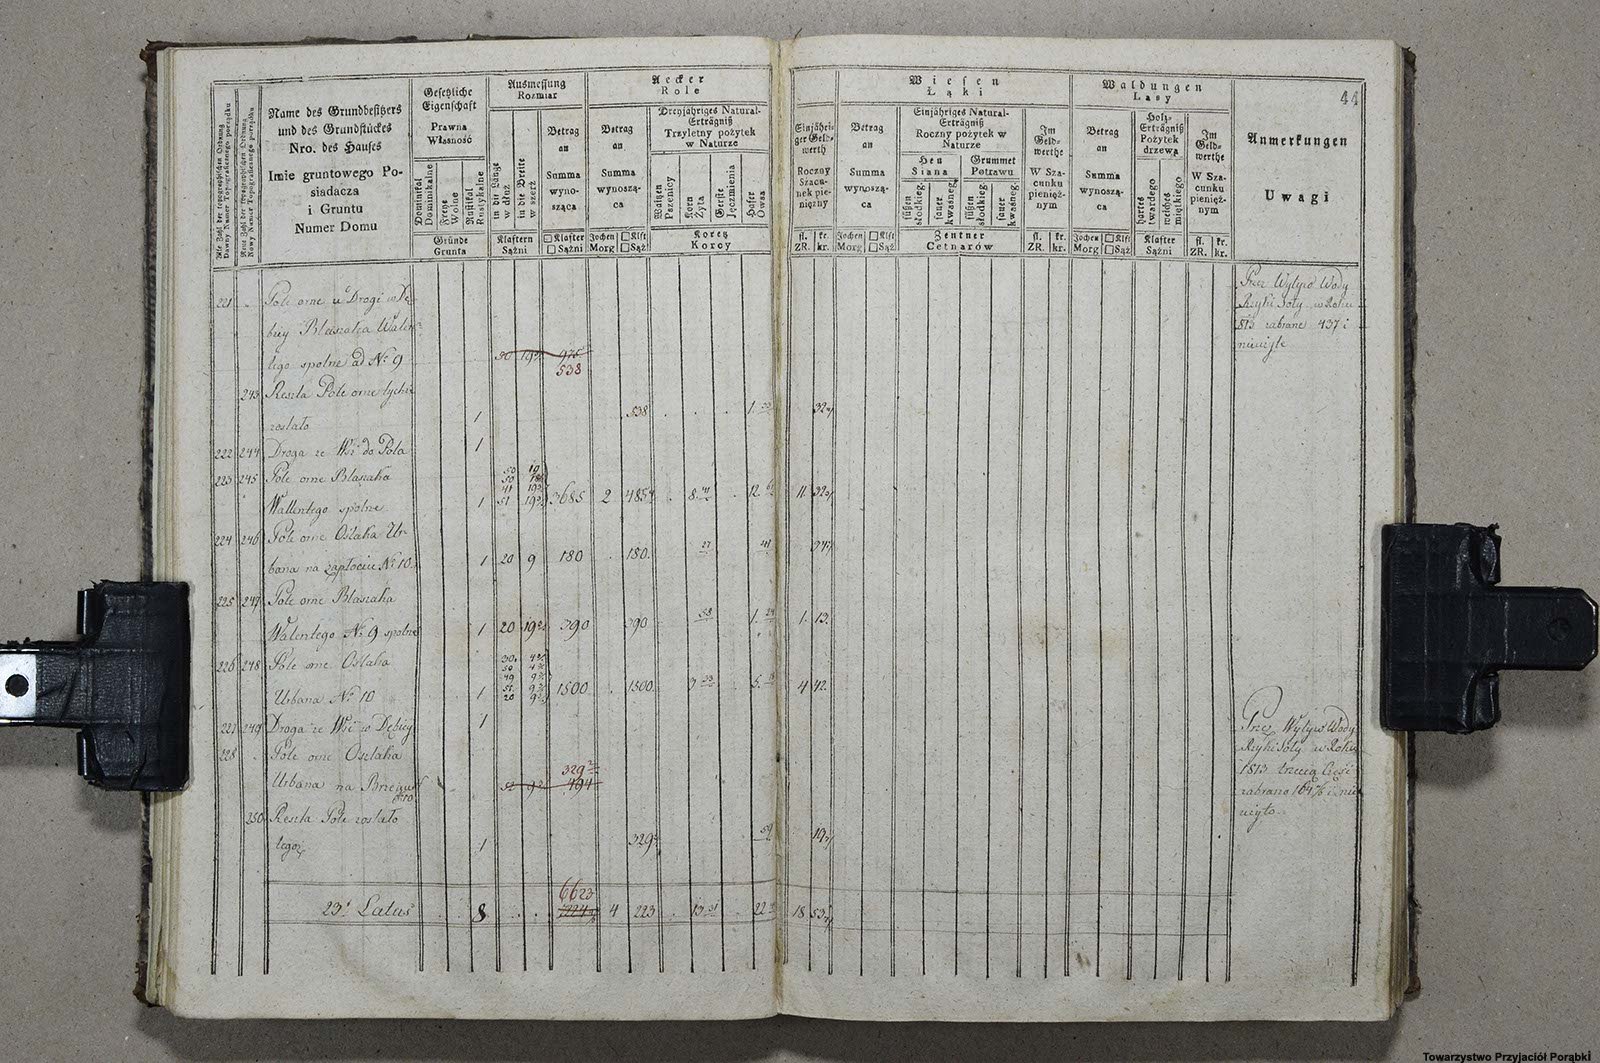 44
Alte Zahl der topographischen Ordnung
Dawny Numer Topograficznego porządku
Neue Zahl der topographischen Ordnung
Nowy Numer Topograficznego porządku
Name des Grundbesitzers
und des Grundstückes
Nro. des Hauses
Imie gruntowego Po-
siadacza
i Gruntu
Numer Domu
Gesetzliche
Eigenschaft
Prawna
Własność
Dominikal
Dominikalne
Freye
Wolne
Rustikal
Rustykalne
Gründe
Grunta
Ausmessung
Rozmiar
in die Länge
w dłuż
in die Breite
w szerz
Klaftern
Sążni
Betrag
an
Summa
wyno-
sząca
□ Klafter
□ Sążni
Aecker
Role
Betrag
an
Summa
wynoszą-
ca
Jochen
Morg
□ Klft
□ Sąż
Dreyjähriges Natural-
Erträgniß
Trzyletny pożytek
w Naturze
Waitzen
Pszenicy
Korn
Żyta
Gerste
Jęczmienia
Hafer
Owsa
Koretz
Korcy
Einjähri-
ger Geld-
werth
Roczny
Szacu-
nek pie-
niężny
fl. kr.
ZR. kr.
Wiesen
Łąki
Betrag
an
Summa
wynoszą-
ca
Jochen
Morg
□ Klft
□ Sąż
Einjähriges Natural-
Erträgniß
Roczny pożytek w
Naturze
Heu
Siana
Grummet
Potrawu
süßen
słodkieg.
sauer
kwaśneg.
süßen
słodkieg.
sauer
kwaśneg.
Zentner
Cetnarów
Im
Geld-
werthe
W Sza-
cunku
pienięż-
nym
fl. kr.
ZR. kr.
Waldungen
Lasy
Betrag
an
Summa
wynoszą-
ca
Jochen
Morg
□ Klft
□ Sąż
Holz-
Erträgniß
Pożytek
drzewa
hartes
twardego
weiches
miękkiego
Klafter
Sążni
Im
Geld-
werthe
W Sza-
cunku
pienięż-
nym
fl. kr.
ZR. kr.
Anmerkungen
Uwagi
221 Pole orne u Drogi w Dę-
bky Błaszaka Walen-
tego spolne ad No 9 50 975
538
243 Reszta Pole orne tychże
zostało 1 538 1. 32
222 244 Droga ze Wsi do Pola 1
223 245 Pole orne Błaszaka
Wallentego spolne 1 3685 2 485 8. 12. 11. 32
224 246 Pole orne Osłaka Ur-
bana na zapłociu No 10. 1 20 9 180 . 180. 27 41
225 247 Pole orne Błaszaka
Walentego No 9 spolne 1 20 19 390 390 58 1. 1. 13.
226 248 Pole orne Osłaka
Urbana No 10 1 1500 . 1500. 5. 4 42.
227 249 Droga ze Wsi w Dębky 1
228 Pole orne Osłaka
329
Urbana na Brzegu 52 494
No 10
250 Reszta Pole zostało
tego 1 329 19
6623
23 Latus 8 4 223 13 22 18 53
Przez Wylyw Wody
Rzyki Soły w Roku
813 zabrane 437 i
Przez Wylyw Wody
Rzyki Soły w Roku
1813 trzecią Częsc
zabrano 164
Towarzystwo Przyjaciół Porąbki